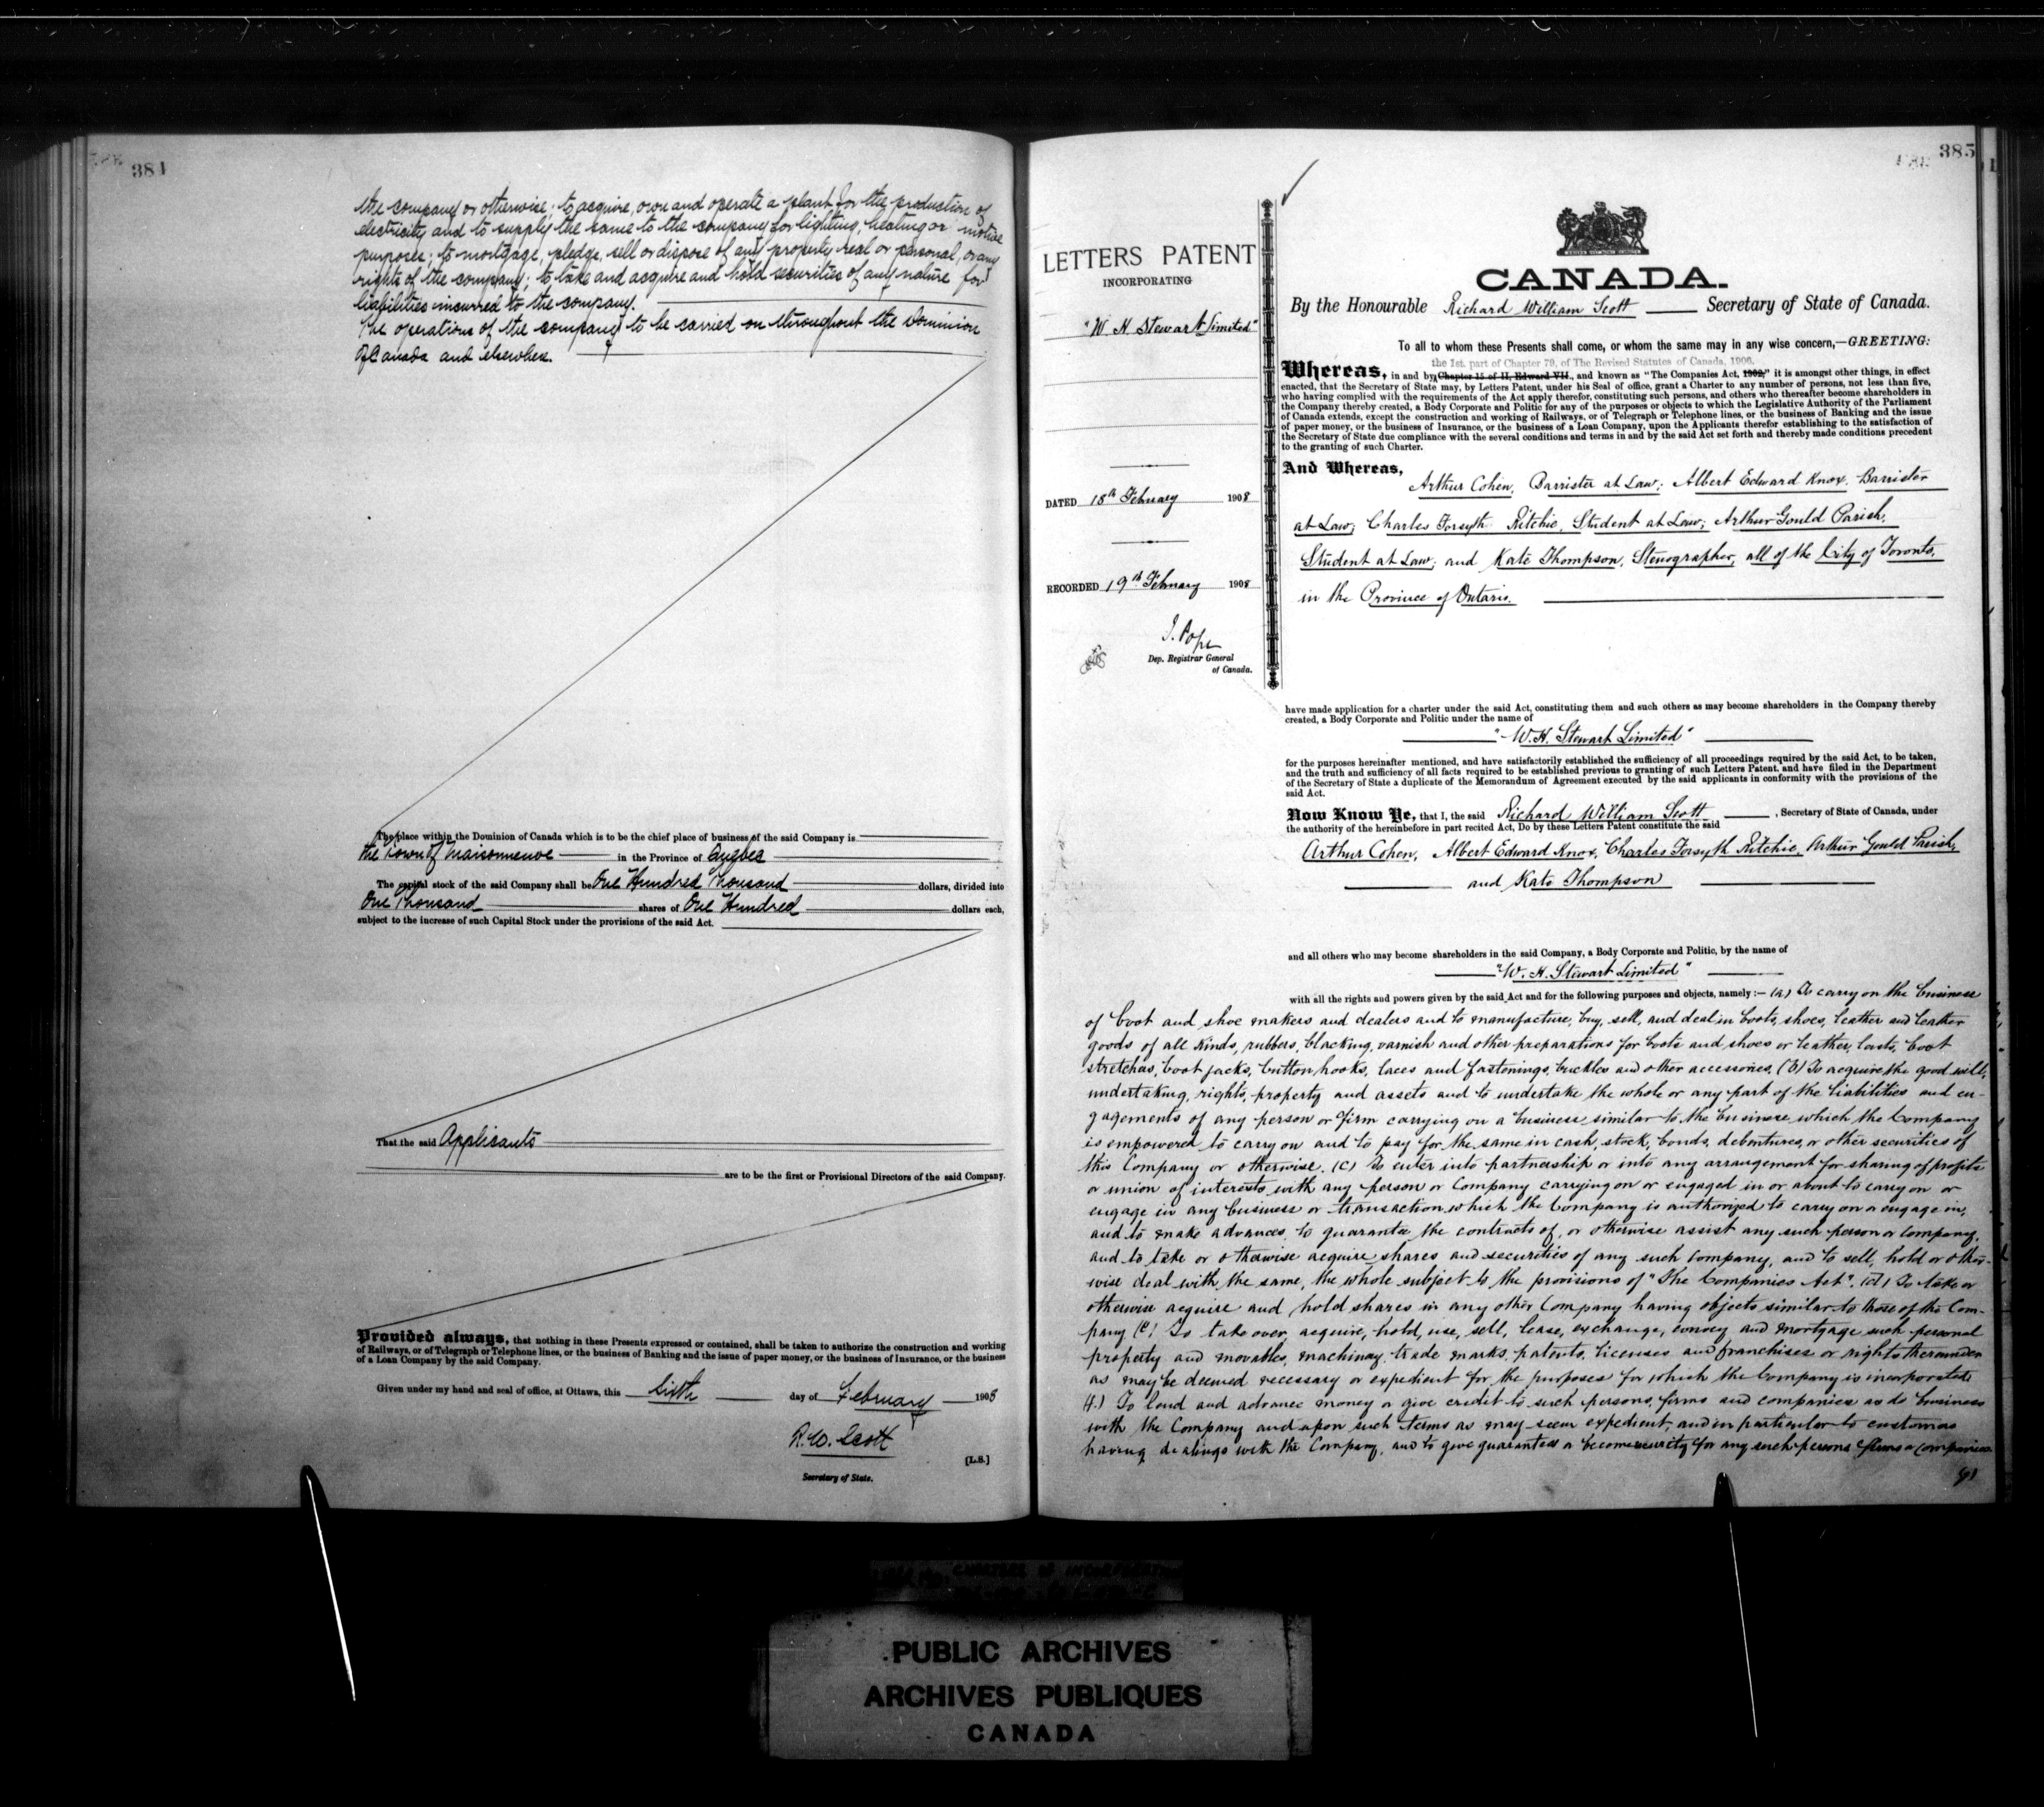 384
the company or otherwise; to acquire, own and operate a plant for the production of
electricity and to supply the same to the company for lighting, heating or motive
purposes; to mortgage, pledge, sell or dispose of any property real or personal, or any
rights of the company; to take and acquire and hold securities of any nature for
liabilities incurred to the company.
The operations of the company to be carried on throughout the Dominion
of Canada and elsewhere.
The place within the Dominion of Canada which is to be the chief place of business of the said Company is
the Town of Maisonneuve in the Province of Quebec
The capital stock of the said Company shall be One Hundred Thousand dollars, divided into
One Thousand shares of One Hundred dollars each,
subject to the increase of such Capital Stock under the provisions of the said Act.
That the said Applicants
are to be the first or Provisional Directors of the said Company.
Provided always, that nothing in these Presents expressed or contained, shall be taken to authorize the construction and working
of Railways, or of Telegraph or Telephone lines, or the business of Banking and the issue of paper money, or the business of Insurance, or the business
of a Loan Company by the said Company.
Given under my hand and seal of office, at Ottawa, this Sixth day of February 1908
R.W. Scott
[L.S.]
Secretary of State.
385
LETTERS PATENT
INCORPORATING
"W. H. Stewart Limited"
DATED 18th February 1908
RECORDED 19th February 1908
J. Pope
Dep. Registrar General
of Canada.
CANADA.
By the Honourable Richard William Scott Secretary of State of Canada.
To all to whom these Presents shall come, or whom the same may in any wise concern,—GREETING:
the 1st. part of Chapter 79, of The Revised Statutes of Canada, 1906.
Whereas, in and by Chapter 15 of II, Edward VII., and known as "The Companies Act, 1902," it is amongst other things, in effect
enacted, that the Secretary of State may, by Letters Patent, under his Seal of office, grant a Charter to any number of persons, not less than five,
who having complied with the requirements of the Act apply therefor, constituting such persons, and others who thereafter become shareholders in
the Company thereby created, a Body Corporate and Politic for any of the purposes or objects to which the Legislative Authority of the Parliament
of Canada extends, except the construction and working of Railways, or of Telegraph or Telephone lines, or the business of Banking and the issue
of paper money, or the business of Insurance, or the business of a Loan Company, upon the Applicants therefor establishing to the satisfaction of
the Secretary of State due compliance with the several conditions and terms in and by the said Act set forth and thereby made conditions precedent
to the granting of such Charter.
And Whereas,
Arthur Cohen, Barrister at Law; Albert Edward Knox, Barrister
at Law; Charles Forsyth Ritchie, Student at Law; Arthur Gould Parish,
Student at Law; and Kate Thompson, Stenographer, all of the City of Toronto,
in the Province of Ontario.
have made application for a charter under the said Act, constituting them and such others as may become shareholders in the Company thereby
created, a Body Corporate and Politic under the name of
"W. H. Stewart Limited"
for the purposes hereinafter mentioned, and have satisfactorily established the sufficiency of all proceedings required by the said Act, to be taken,
and the truth and sufficiency of all facts required to be established previous to granting of such Letters Patent, and have filed in the Department
of the Secretary of State a duplicate of the Memorandum of Agreement executed by the said applicants in conformity with the provisions of the
said Act.
Now Know Ye, that I, the said Richard William Scott, Secretary of State of Canada, under
the authority of the hereinbefore in part recited Act, Do by these Letters Patent constitute the said
Arthur Cohen, Albert Edward Knox, Charles Forsyth Ritchie, Arthur Gould Parish,
and Kate Thompson
and all others who may become shareholders in the said Company, a Body Corporate and Politic, by the name of
"W. H. Stewart Limited"
with all the rights and powers given by the said Act and for the following purposes and objects, namely:— (a) To carry on the business
of boot and shoe makers and dealers and to manufacture, buy, sell, and deal in boots, shoes, leather and leather
goods of all kinds, rubbers, blacking, varnish and other preparations for boots and shoes or leather, lasts, boot
stretchers, boot jacks, button hooks, laces and fastenings, buckles and other accessories. (b) To acquire the good will,
undertaking, rights, property and assets and to undertake the whole or any part of the liabilities and en-
gagements of any person or firm carrying on a business similar to the business which the Company
is empowered to carry on and to pay for the same in cash, stock, bonds, debentures, or other securities of
this Company or otherwise. (c) To enter into partnership or into any arrangement for sharing of profits
or union of interests with any person or Company carrying on or engaged in or about to carry on or
engage in any business or transaction which the Company is authorized to carry on or engage in,
and to make advances, to guarantee the contracts of, or otherwise assist any such person or company,
and to take or otherwise acquire shares and securities of any such company, and to sell, hold or other-
wise deal with the same, the whole subject to the provisions of "The Companies Act". (d) To take or
otherwise acquire and hold shares in any other Company having objects similar to those of the Com-
pany (e) To take over, acquire, hold, use, sell, lease, exchange, convey and mortgage such personal
property and movables, machinery, trade marks, patents, licenses and franchises or rights thereunder
as may be deemed necessary or expedient for the purposes for which the Company is incorporated
(f.) To lend and advance money or give credit to such persons, firms and companies as do business
with the Company and upon such terms as may seem expedient, and in particular to customers
having dealings with the Company, and to give guarantees or become security for any such persons, firms or companies.
(g)
CHARTERS OF INCORPORATION
PUBLIC ARCHIVES
ARCHIVES PUBLIQUES
CANADA